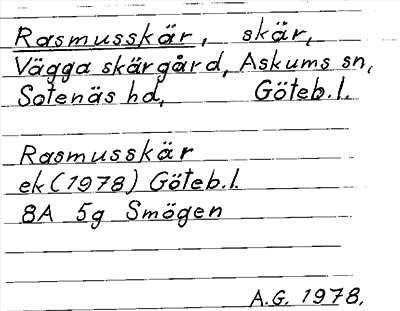 Rasmusskär, skär,
Vägga skärgård, Askums sn,
Sotenäs hd, Göteb.l.
Rasmusskär
ek (1978) Göteb.l.
8A 5g Smögen
A.G. 1978.